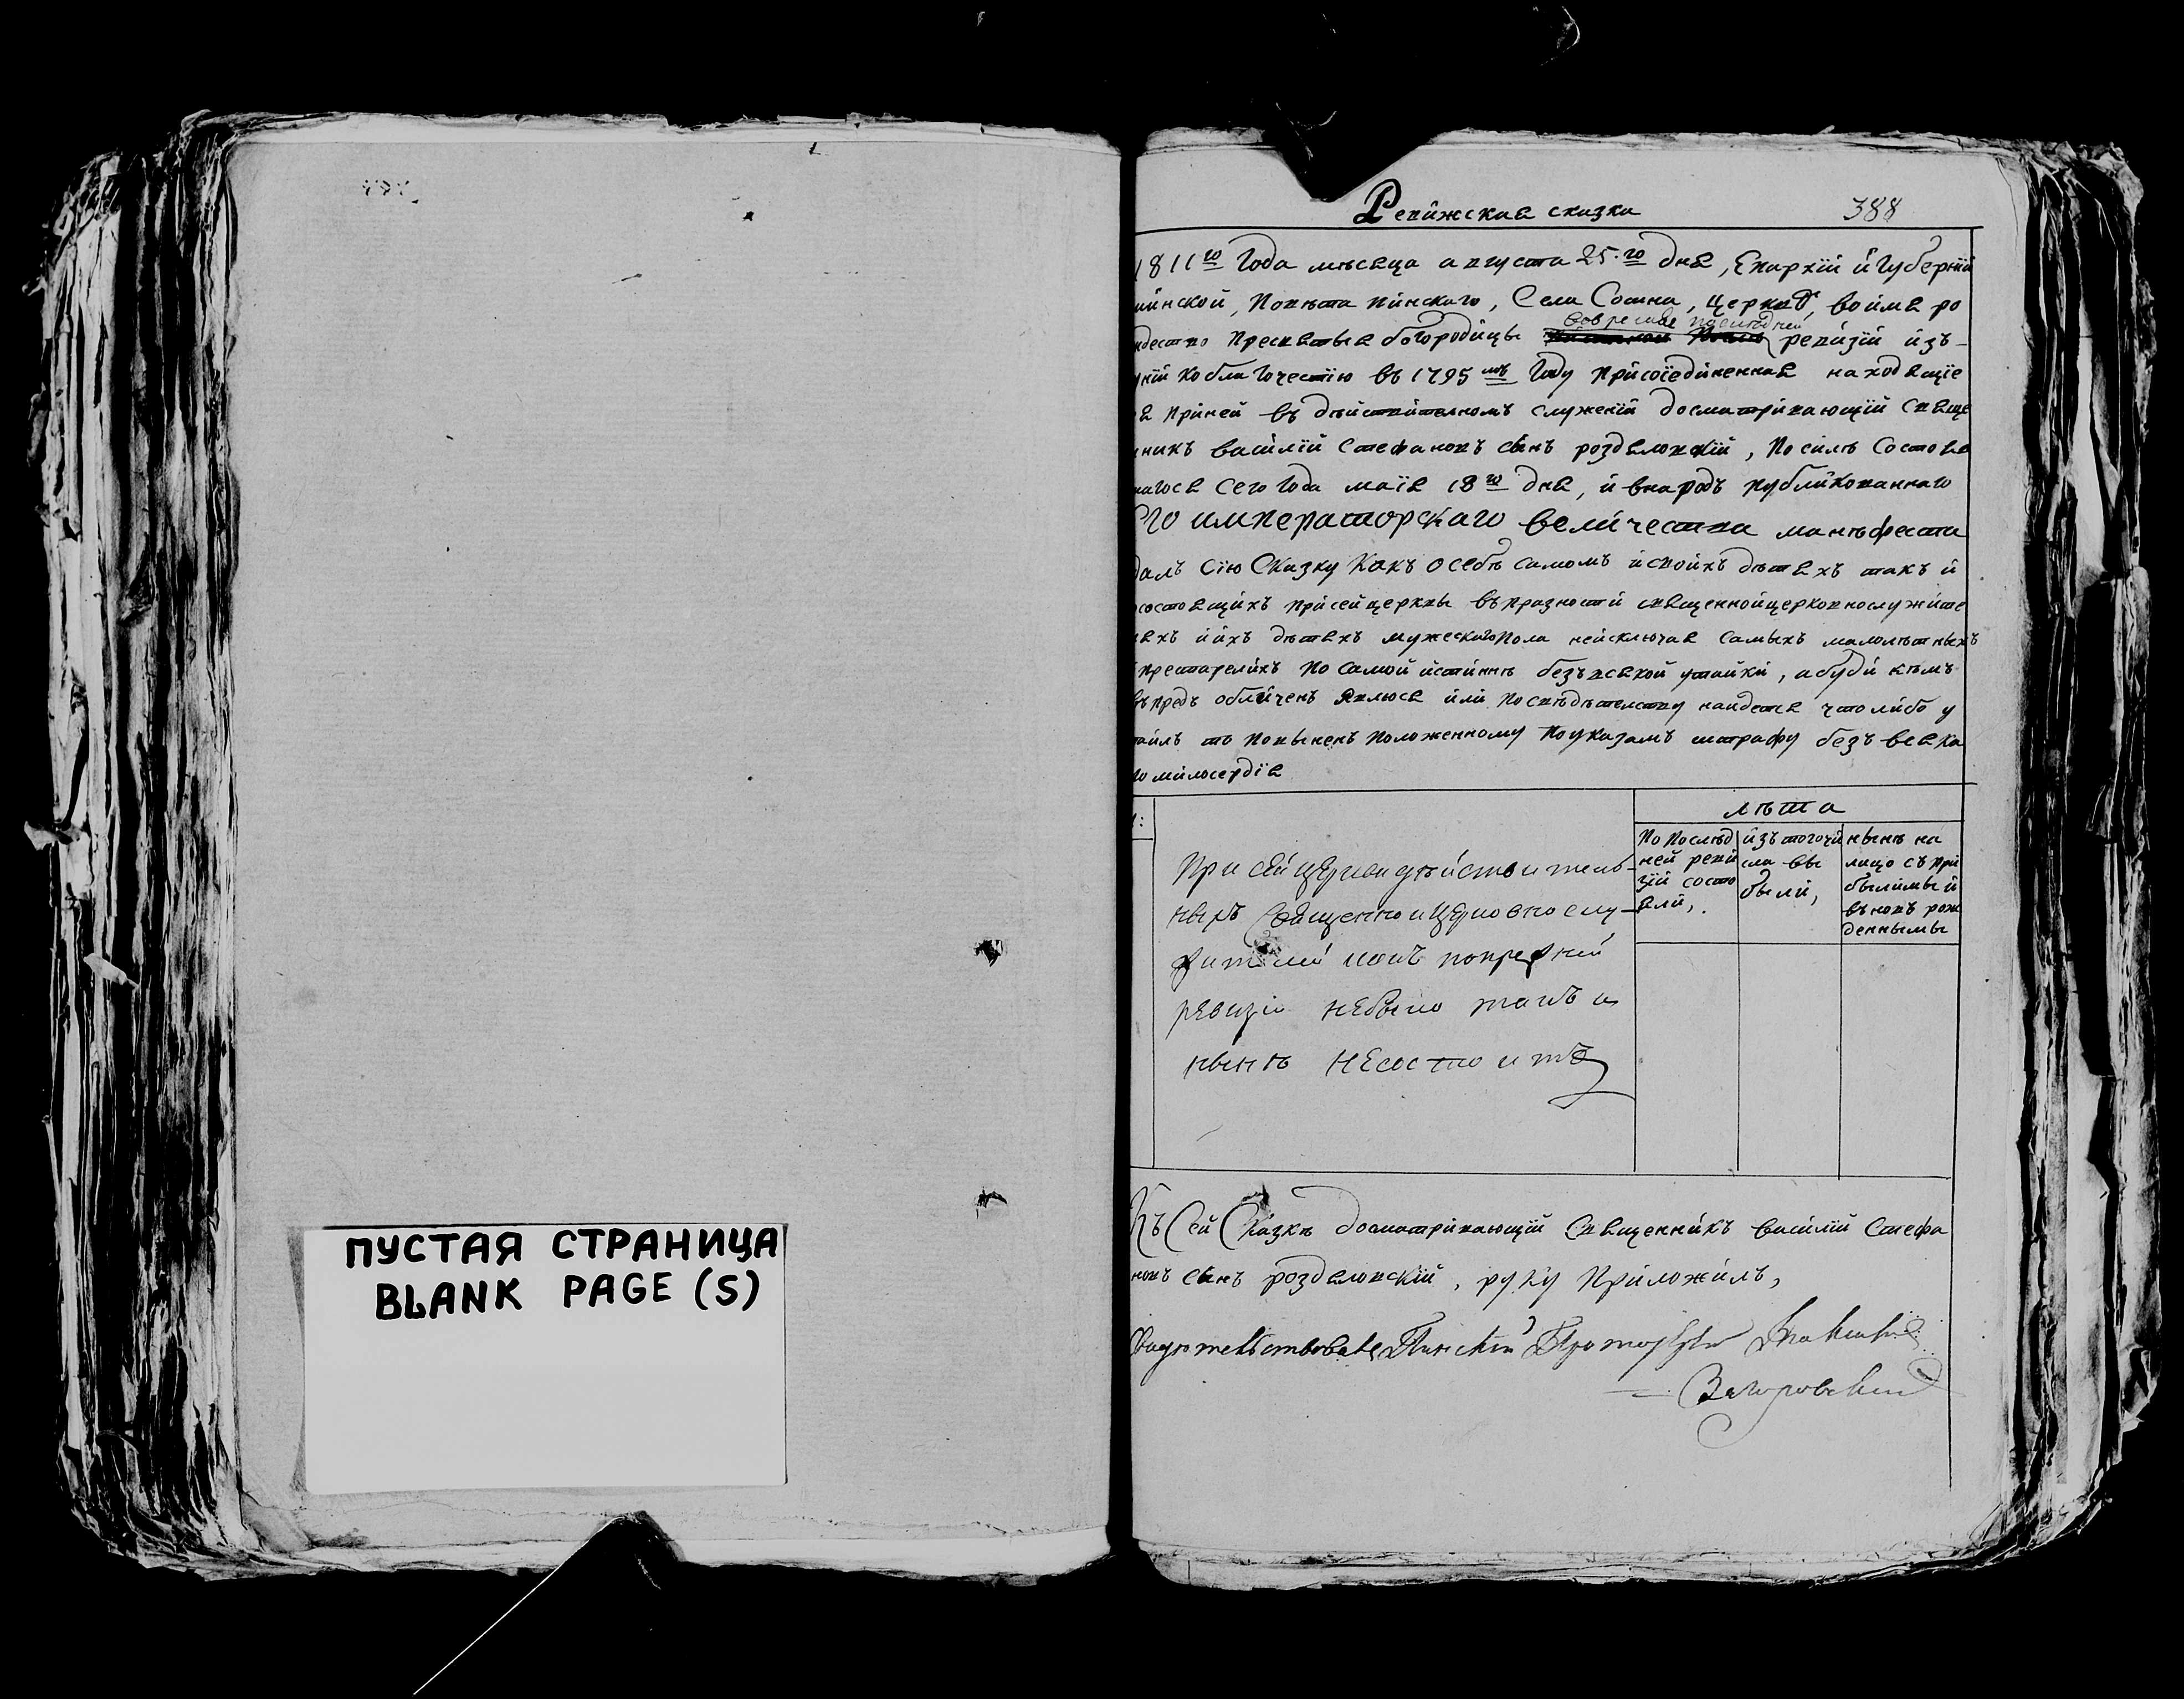 ПУСТАЯ СТРАНИЦА
BLANK PAGE (S)
Ревижская сказка
388
1811го Года мѣсяца августа 25.го дня, Епархїи и Губернїи
минской, Повѣта пинскаго, Села Сошна, Церкви, во имя ро
ждество Пресвятыя богородицы вовремя последней ревизїи изъ
унїи ко благочестїю въ 1795мъ Году присоїединенная находящїе
ся при ней въ дѣйствителномъ служенїи досматривающїй свяще
нникъ василїй Стефановъ сынъ роздяловскїй, По силѣ Состояв
шагося сего Года маїя 18го дня, и внародъ публикованнаго
Его императорскаго величества манѣфеста
далъ сїю Сказку Какъ о себѣ самомъ и своихъ дѣтяхъ такъ и
состоящихъ при сей церквы въ праздности священно и церковнослужите
ляхъ и ихъ дѣтяхъ мужескаго Пола неисключая самыхъ малолѣтныхъ
престарелихъ По самой истиннѣ безъ всякой утайки, а буди кѣмъ
въпредъ обличенъ явлюся или По свѣдѣтелству наидется что либо у
таилъ то Повыненъ Положенному По указамъ штрафу безъ всяка
го милосердїя
лѣта
По Послѣд
ней реви
зїи состо
яли,
изъ того чи
сла вы
были,
нынѣ на
лицо съ при
былимы и
въновъ рож
деннымы
При сей церкви дѣйствитель-
ныхъ Священно и Церковнослу-
жителей какъ попредней
ревизіи небыло такъ и
нынѣ несостоитъ
Къ Сей Сказкѣ досматривающїй Священникъ василїй Стефа
новъ сынъ роздяловскїй, руку Приложилъ,
Пинский